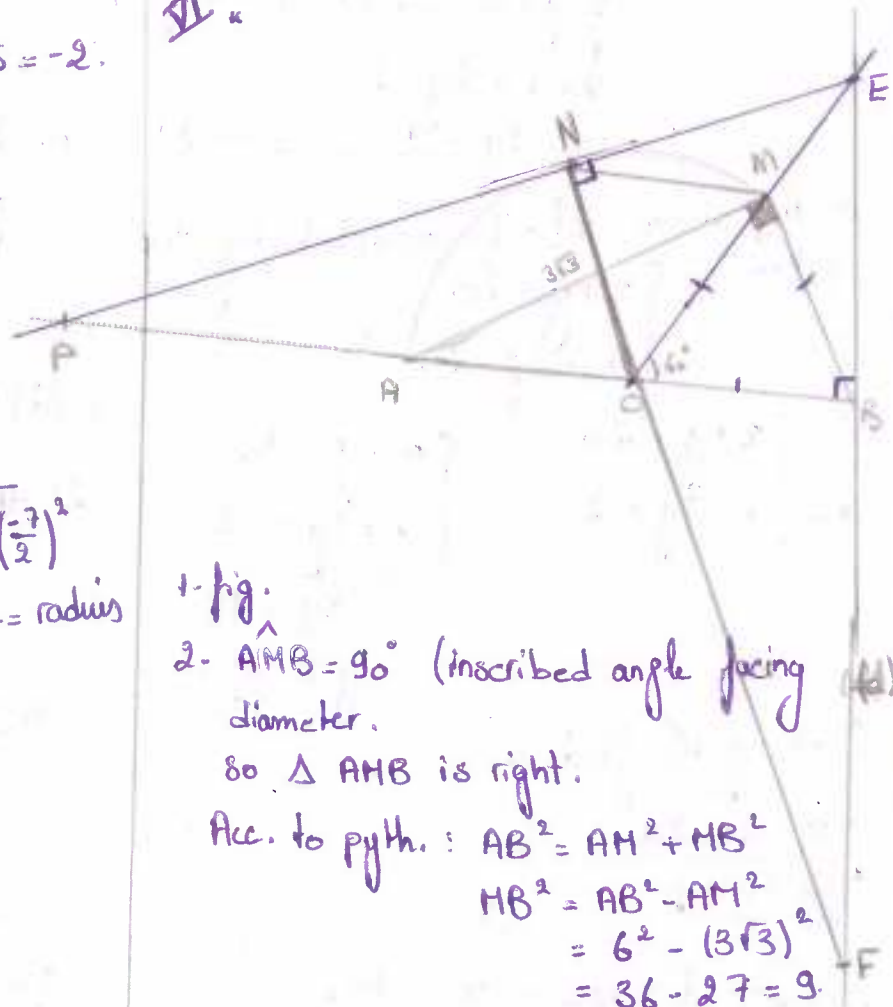 VI.
5 = -2.
E
N
M
3√3
P
A
O
60°
B
(-7/2)²
= radius
1- fig.
2- AM̂B = 90° (inscribed angle facing
(d)
diameter.
so Δ AMB is right.
Acc. to pyth. : AB² = AM² + MB²
MB² = AB² - AM²
= 6² - (3√3)²
F
= 36 - 27 = 9.